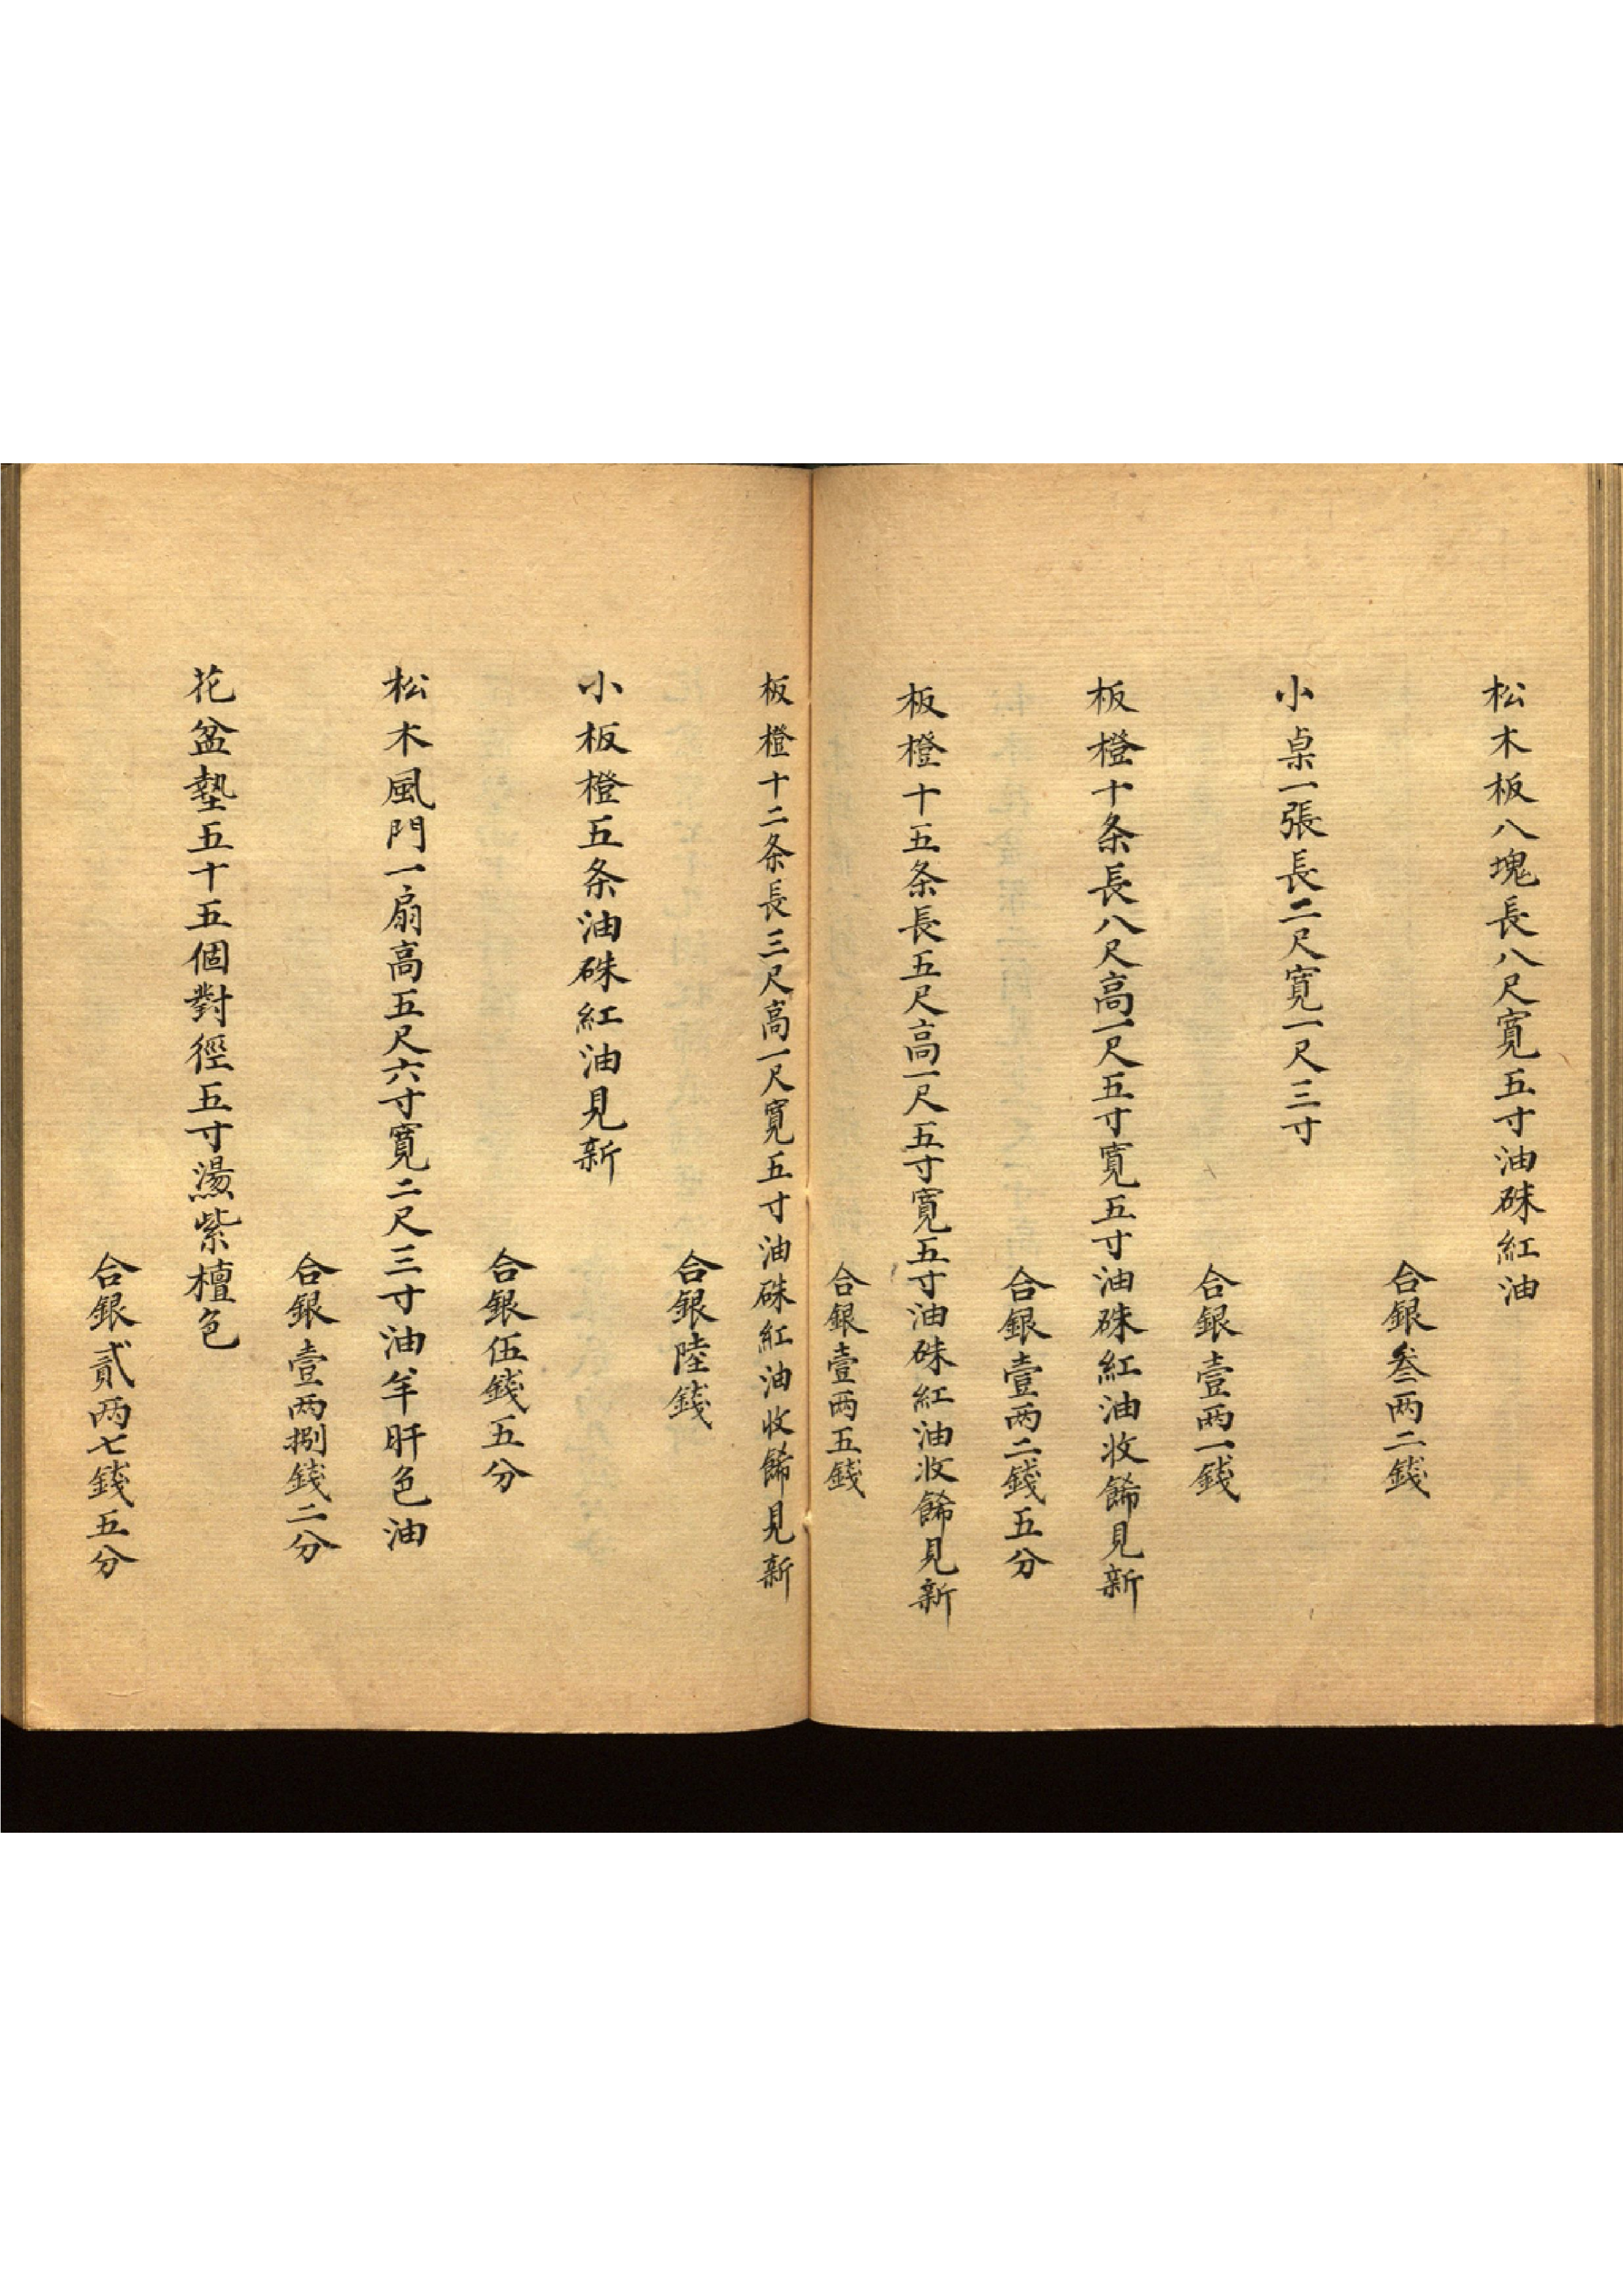 松木板八塊長八尺寬五寸油硃紅油
合銀叁两二錢
小桌一張長二尺寬一尺三寸
合銀壹两一錢
板橙十条長八尺高一尺五寸寬五寸油硃紅油收餙見新
合銀壹两二錢五分
板橙十五条長五尺高一尺五寸寬五寸油硃紅油收餙見新
合銀壹两五錢
板橙十二条長三尺高一尺寬五寸油硃紅油收餙見新
合銀陸錢
小板橙五条油硃紅油見新
合銀伍錢五分
松木風門一扇高五尺六寸寬二尺三寸油羊肝色油
合銀壹两捌錢二分
花盆墊五十五個對徑五寸燙紫檀色
合銀貳两七錢五分